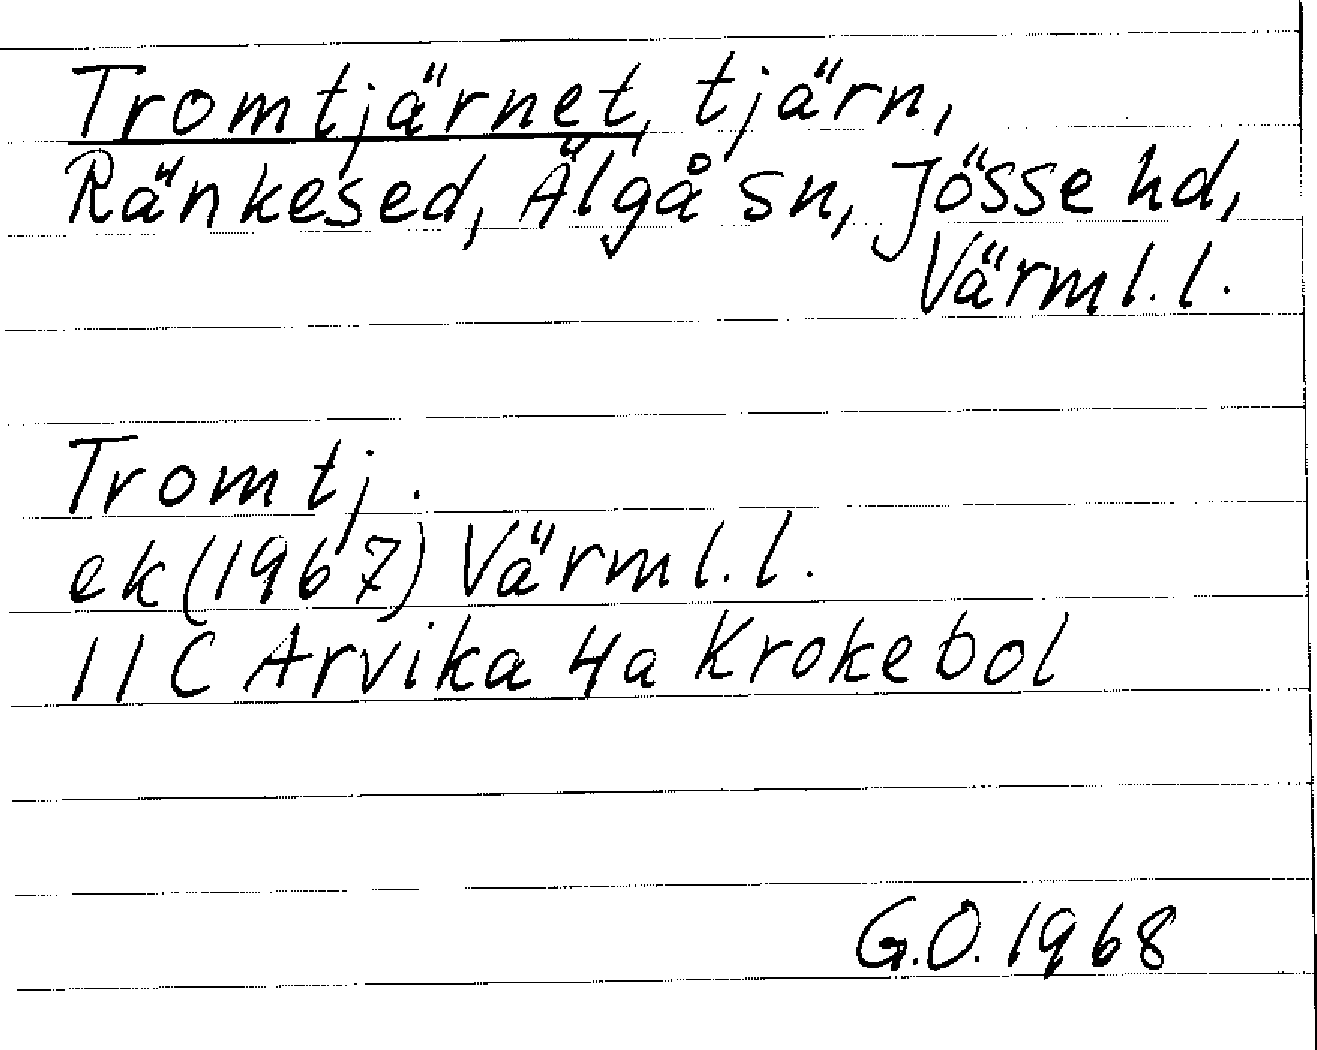 Tromtjärnet, tjärn,
Ränkesed, Älgå sn, Jösse hd,
Värml.l.
Tromtj.
ek(1967) Värml.l.
11C Arvika 4a Krokebol
G.O. 1968